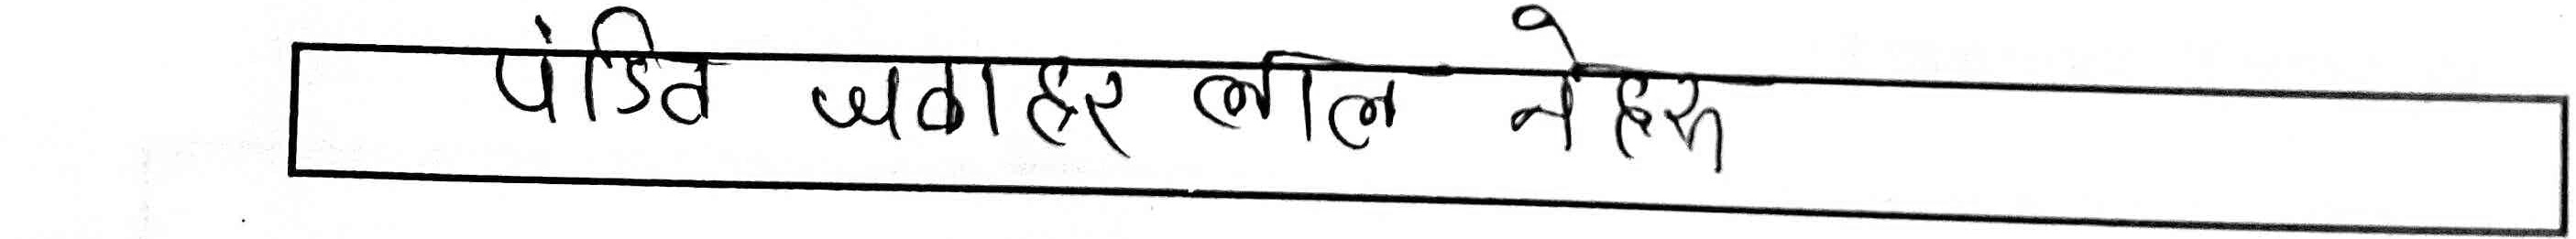 पंडित जवाहर लाल नेहरु